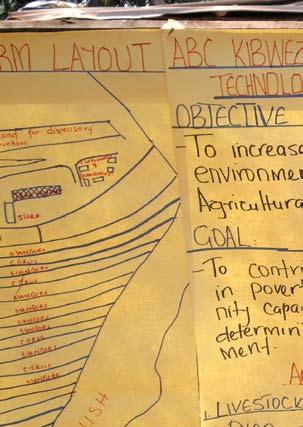 RM LAYOUT
and for dispensary
ruction
STORE
MANGOES
CITRUS
MANGOES
CITRUS
MANGOES
MANGOES
MANGOES
CITRUS
MANGOES
CITRUS
MANGOES
ISH
ABC KIBWEZ
TECHNOLO
OBJECTIVE
- To increase
environmen
Agricultura
GOAL:
- To contr
in povert
nity capac
determin
ment.
1. LIVESTOCK